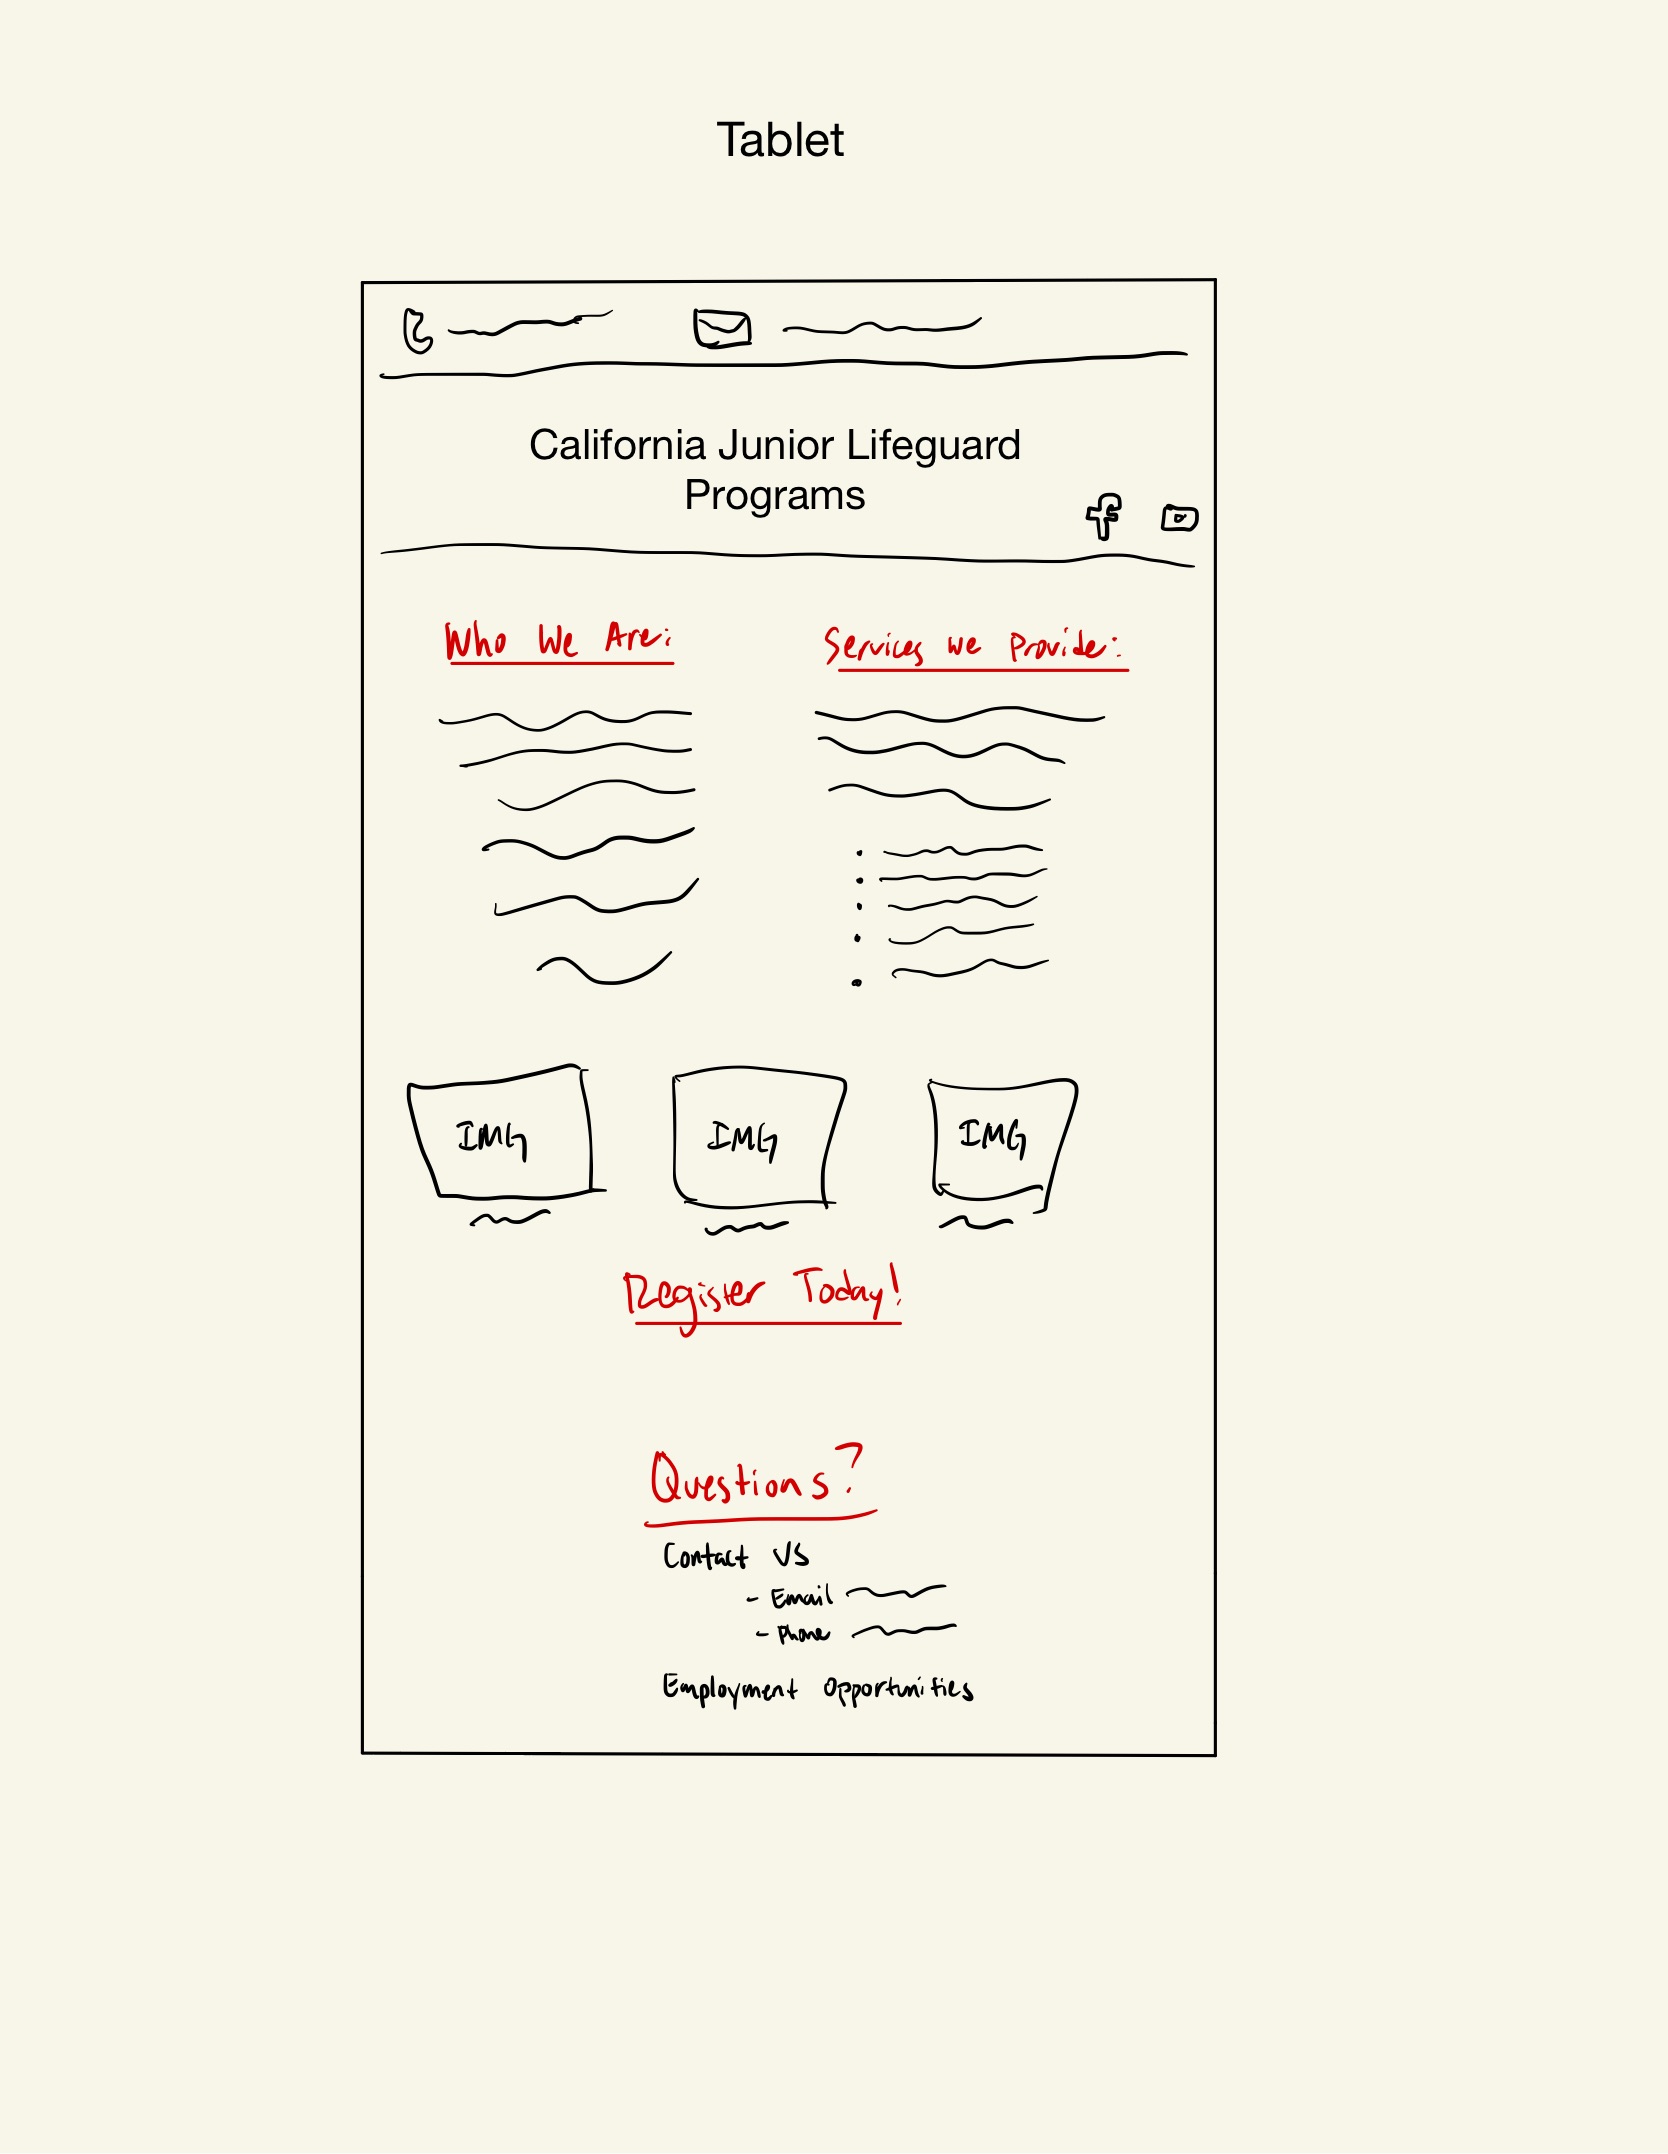 Tablet
California Junior Lifeguard
Programs
Who We Are:
Services we Provide:
IMG
IMG
IMG
Register Today!
Questions?
Contact US
- Email
- Phone
Employment Opportunities